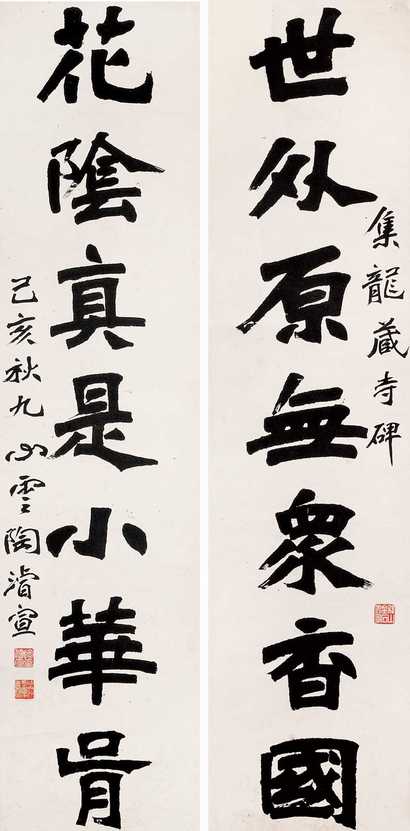 世外原無眾香國
集龍藏寺碑
花陰真是小華胥
己亥秋九心雲陶濬宣